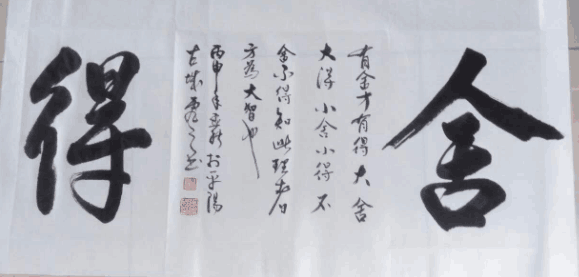 舍
有舍才有得大舍
大得小舍小得不
舍不得知此理者
方为大智也
丙申年
于平阳
古城
得